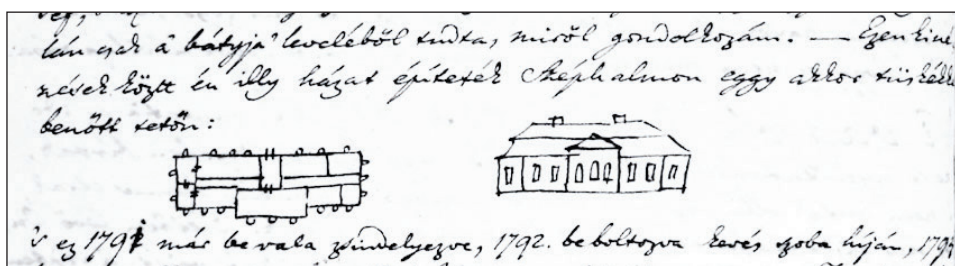 lán csak a' bátyja' leveléből tudta, miről gondolkozám. — Ezen kiné
zések közt én illy házat építeték Széphalmon eggy akkor tüskékk
benőtt tetőn:
's ez 1791 már be vala zsindelyezve, 1792. beboltozva kevés szoba híján, 179